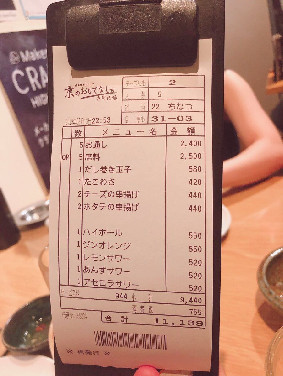 @Maker
CRA
HIGH
京のおもてなし
2
5
22 ちなつ
22:53
31-03
数 メニュー名 金額
5 お通し 2,400
5 席料 2,500
1 だし巻き玉子 580
1 たこわさ 420
2 チーズの串揚げ 440
2 ホタテの串揚げ 440
1 ハイボール 550
1 ジンオレンジ 550
1 レモンサワー 520
1 あんずサワー 520
1 アセロラサワー 520
9,400
755
合計 11,109